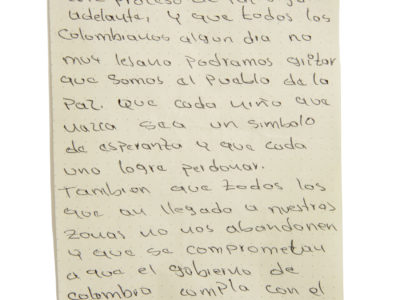 este proceso de paz siga
adelante, y que todos los
Colombianos algun dia no
muy lejano podramos gritar
que somos el pueblo de la
Paz. Que cada niño que
nazca sea un simbolo
de esperanza y que cada
uno logre perdonar.
Tambien que todos los
que an llegado a nuestras
zonas no nos abandonen
y que se comprometan
a que el gobierno de
colombia cumpla con el